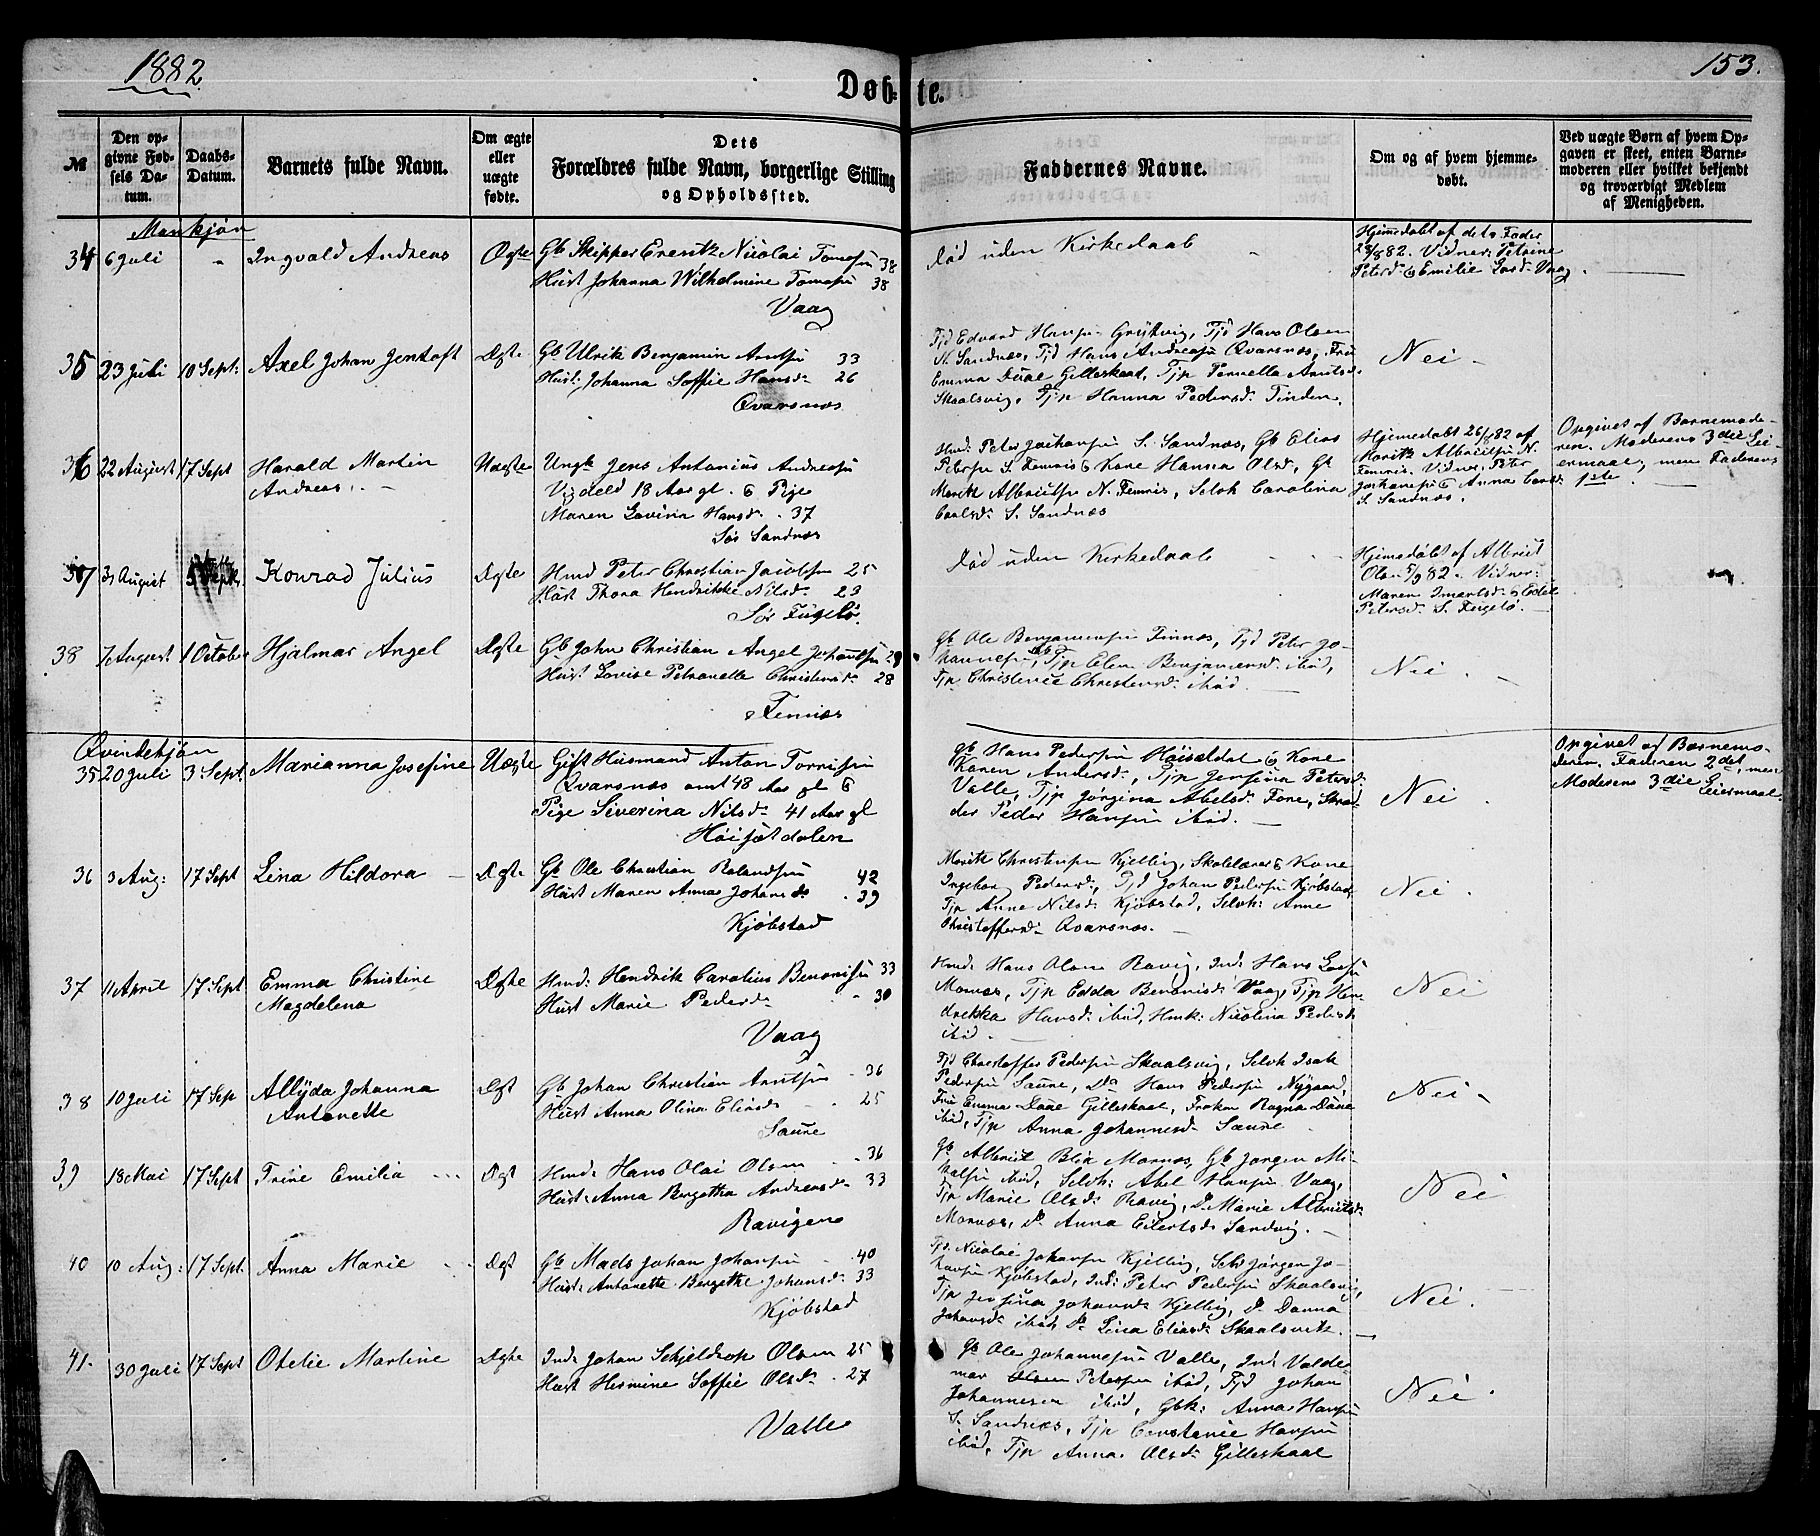 1882.
153.
Døbte.
№
Den opgivne Fødsels Datum.
Daabs-Datum.
Barnets fulde Navn.
Om ægte eller uægte fødte.
Dets Forældres fulde Navn, borgerlige Stilling og Opholdssted.
Faddernes Navne.
Om og af hvem hjemmedøbt.
Ved uægte Børn af hvem Opgaven er skeet, enten Barnemoderen eller hvilket bekjendt og troværdigt Medlem af Menigheden.
Mankjøn
34 6 Juli " Ingvald Andreas Ægte
Gb Skipper Nicolai Tomasen 38
Hust Johanna Wilhelmine Tomasen 38
Vaag
død uden Kirkedaab
Hjemedøbt af dets Fader
28/8 82. Vidner: Petrine
Petersd. & Emilie Vaag.
35 23 Juli 10 Sept: Axel Johan Jentoft Ægte
Gb Ulrik Benjamin Arntsen 33
Hust: Johanna Soffie Hansd. 26
Qvarsnæs
Tjd Edvard Hansen Grytvig, Tjd Hans Olsen
N. Sandnæs, Tjd Hans Andreasen Qvarsnæs, Fru
Emma Gilleskaal, Tjp Pernella Arntsd.
Skaalsvig, Tjp Hanna Pedersd. Tinden.
Nei
36 22 August 17 Sept Harald Martin
Andreas. Uægte
Ungk Jens Antonius Andreasen
18 Aar gl. & Pige
Maren Lovina Hansd. 37
Sør Sandnæs
Hmd: Peter Jochansen S. Sandnæs, Gb Elias
Petersen S. Femris & Kone Hanna Olsd, Gb
Morits Albrictsen N. Femris, Selvk Carolina
Carlsd. S. Sandnæs
Hjemedøbt 26/8 82 af
Morits Albrictsen N.
Femris. Vidner, Peter
Jochansen & Anna
S. Sandnæs.
Opgives af Barnemoderen.
Moderens 3die Leiermaal,
men Faderens
1ste.
37 31 August Konrad Julius Ægte
Hmd Peter Christian Jacobsen 25
Hust Thora Hendrikke Nilsd. 23
Sør Fugelø.
død uden Kirkedaab
Hjemedøbt af Albrict
Olsen 5/9 82. Vidner:
Maren & Edel
Petersd. S. Fugelø.
38 7 August 1 October Hjalmar Angel Ægte
Gb John Christian Angel Johansen 29
Hust Lovise Petranelle Christensd. 28
Femris
Gb Ole Benjaminsen Finnæs, Tjd Peter Johannesen
Tjp Elen Benjaminsd. ibid,
Tjp Christence Christensd. ibid.
Nei.
Qvindekjøn
35 20 Juli 3 Sept. Marianna Josefine Uægte
Gift Husmand Anton Torrisen
Qvarsnæs omt 48 Aar gl &
Pige Siverina Nilsd. 41 Aar gl
Høisætdalen
Gb Hans Pedersen Høisetdal & Kone
Karen Andersd., Tjp Jensina Petersd.
Valle, Tjp Jørgina Abelsd. Fore,
Peder Hansen ibid.
Nei.
Opgivet af Barnemoderen.
Faderen 2det, men
Moderens 3die Leiermaal.
36 3 Aug: 17 Sept Lina Hildora Ægte
Gb Ole Christian Rolandsen 42
Hust Maren Anna Johansd. 39
Kjøbstad
Morits Christensen Kjelling, Skolelærer & Kone
Ingeborg Pedersd., Tjd Johan Pedersen Kjøbstad,
Tjp Anne Nilsd. Kjøbstad, Selvk: Anne
Christoffersd. Qvarsnæs.
Nei.
37 11 April 17 Sept Emma Christine
Magdelena Ægte
Hmd: Hendrik Carolius Benonisen 33
Hust Marie Pedersd. 30
Vaag
Hmd: Hans Olsen Ravig, Ind: Hans
Mornæs, Tjp Edda Benonisd. Vaag, Tjp Hendrekka
Hansd. ibid, Hmk: Nicolina Pedersd.
ibid.
Nei
38 10 Juli 17 Sep Allyda Johanna
Antonette Ægt
Gb Johan Christian Arntsen 36
Hust Anna Olina Eliasd. 25
Saure
Tjd Christoffer Pedersen Skaalsvig, Selvk Isak
Pedersen Saure, Do Hans Pedersen Nygaard,
Fru Emma Daae Gilleskaal, Frøken Ragna Daae
ibid, Tjp Anna Johannesd. Saure
Nei
39 18 Mai 17 Sept Trine Emilia Ægt
Hmd: Hans Olai Olsen 36
Hust: Anna Bergettha Andreasd. 33
Ravigen
Gb Albrict Blix Mornæs, Gb Jørgen
ibid, Selvk: Abel Hansen Vaag,
Tjp Marie Olsd. Ravig, D. Marie Albrictsd.
Mornæs, D. Anna Eilertsd. Sandvig.
Nei
40 10 Aug: 17 Sept. Anna Marie Ægt
Gb Mads Johan Johansen 40
Hust: Antonette Bergethe Johansd. 33
Kjøbstad
Tjd. Nicolai Johansen Kjelling, Selvk Jørgen Johansen
Kjøbstad, Ind: Peter Pedersen Skaalsvig,
Tjp Jensina Johannsd. Kjelling, D. Danna
Johansd. ibid, D. Lina Eliasd. Skaalsvik.
Nei.
41. 30 Juli 17 Sept Otelie Martine Ægte
Ind: Johan Schjeldrop Olsen 25
Hust Hermine Soffie Olsd. 27
Valle
Gb Ole Johannesen Valle, Ind Valdemar
Petersen ibid, Tjd Johan
Johannesen ibid, Gbk: Anna Hansen
S. Sandnæs, Tjp Constance Hansen
ibid, Tjp Anna Olsd. Gilleskaal
Nei.